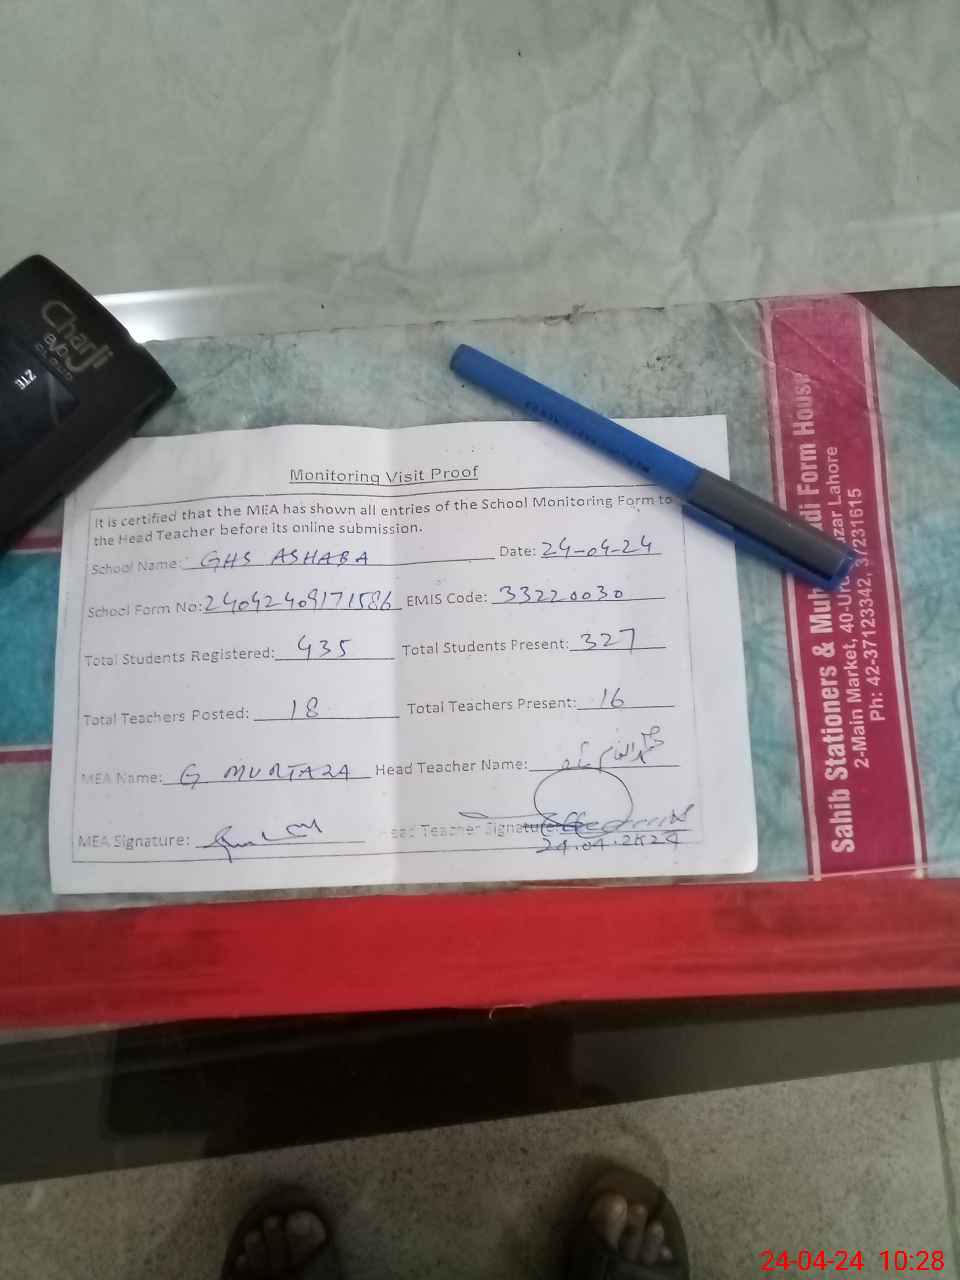 Charji
evo
CLOUD
ZTE
Monitoring Visit Proof
It is certified that the MEA has shown all entries of the School Monitoring Form to
the Head Teacher before its online submission.
School Name: GHS ASHABA Date: 24-04-24
School Form No: 24042409171586 EMIS Code: 33220030
Total Students Registered: 435 Total Students Present: 327
Total Teachers Posted: 18 Total Teachers Present: 16
MEA Name: G MURTAZA Head Teacher Name:
MEA Signature: Head Teacher Signature:
24.04.2024
Sahib Stationers & Form House
2-Main Market, Lahore
Ph: 42-37123342, 37231615
24-04-24 10:28